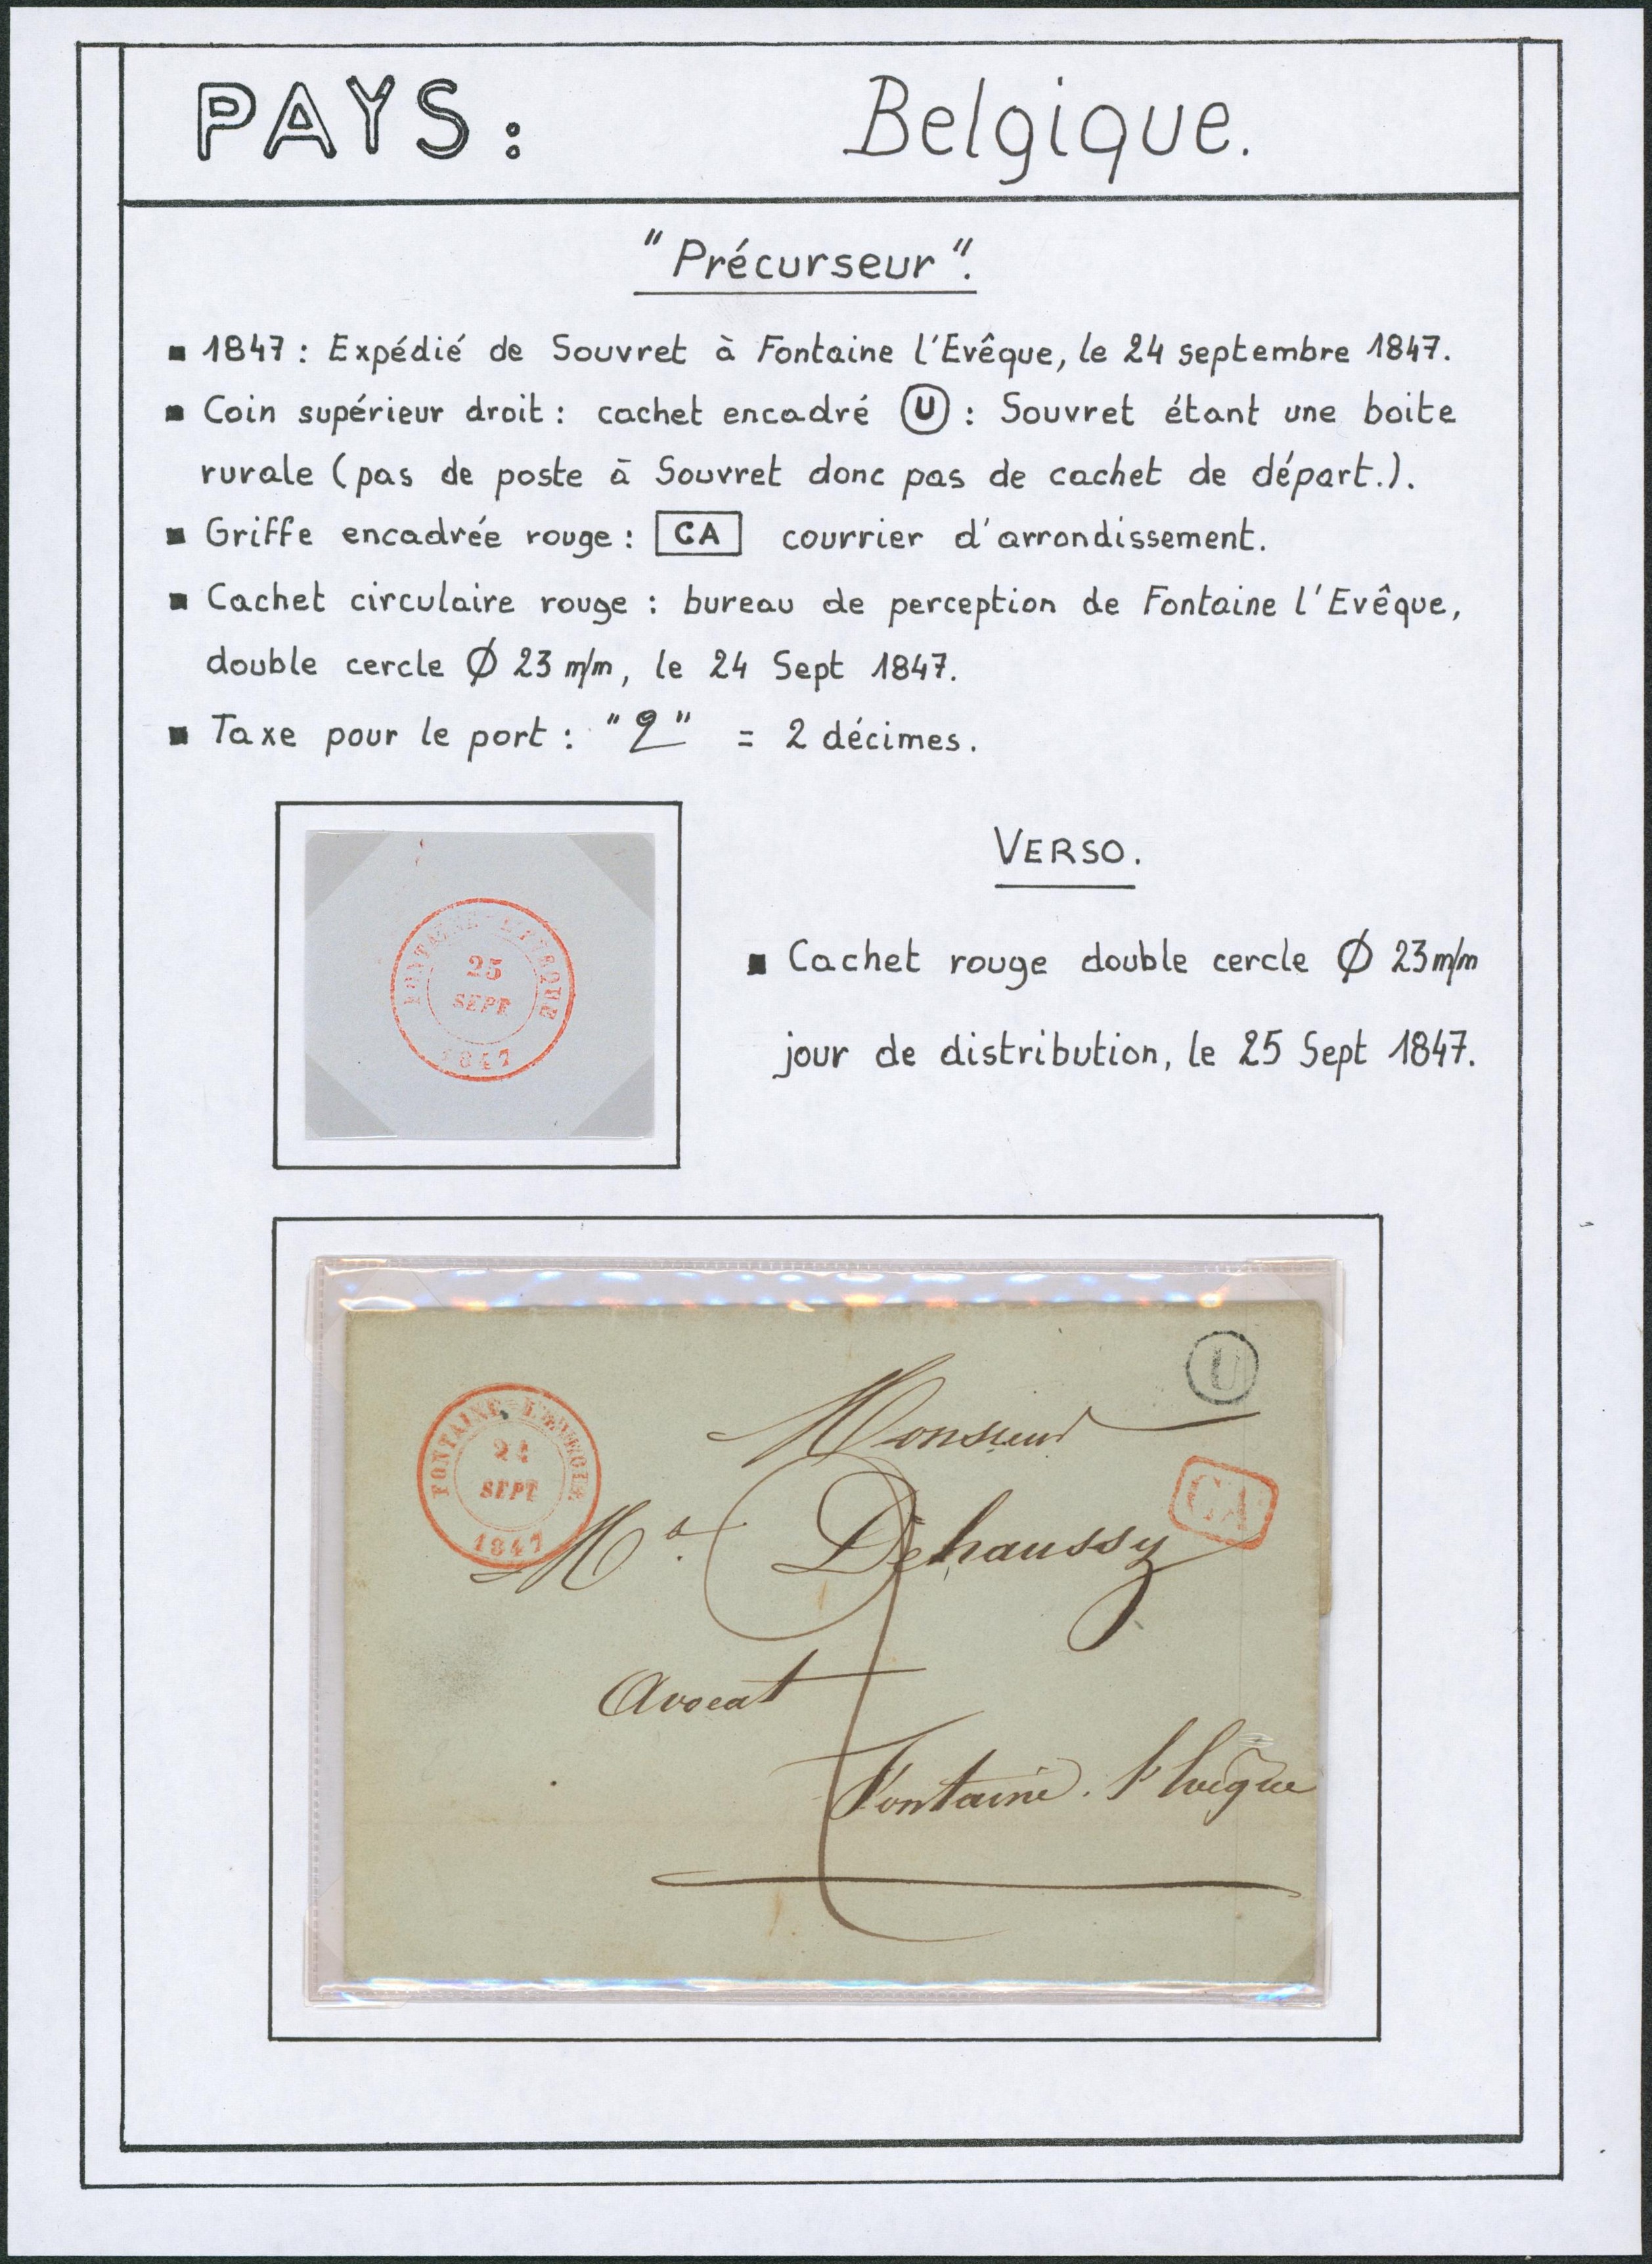 PAYS: Belgique.
"Précurseur".
▪ 1847: Expédié de Souvret à Fontaine l'Evêque, le 24 septembre 1847.
▪ Coin supérieur droit: cachet encadré U : Souvret étant une boite
rurale (pas de poste à Souvret donc pas de cachet de départ.).
▪ Griffe encadrée rouge: CA courrier d'arrondissement.
▪ Cachet circulaire rouge : bureau de perception de Fontaine l'Evêque,
double cercle Ø 23 m/m, le 24 Sept 1847.
▪ Taxe pour le port : "2" = 2 décimes.
VERSO.
FONTAINE-L'EVEQUE
25
SEPT
1847
▪ Cachet rouge double cercle Ø 23 m/m
jour de distribution, le 25 Sept 1847.
U
FONTAINE-L'EVEQUE
24
SEPT
1847
Monsieur
CA
Dehaussy
2
Avocat
Fontaine. l'Evêque